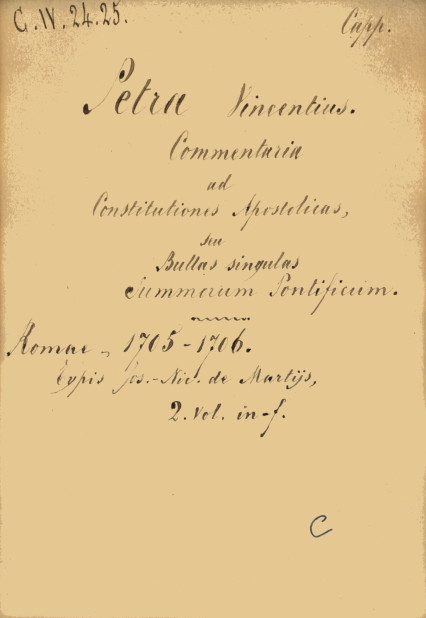 C.IV.24.25.
Capp.
Petra Vincentius.
Commentaria
ad
Constitutiones Apostolicas,
seu
Bullas singulas
Summorum Pontificum.
Romae, 1705-1706.
Typis Jos.-Nic. de Martijs,
2. Vol. in-f.
C